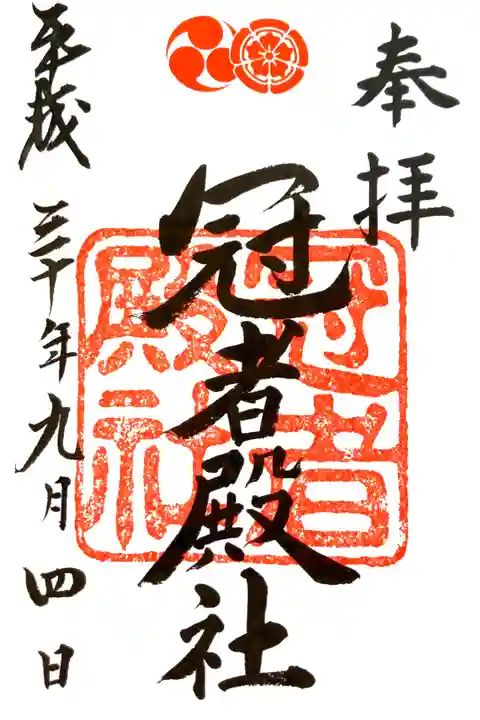 奉拝
冠者殿社
冠者殿社
平成三十年九月四日